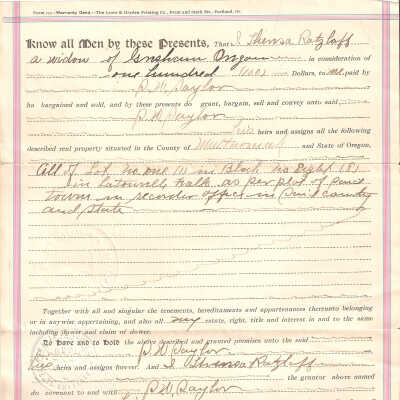 Form 100—Warranty Deed—The Lewis & Dryden Printing Co., Front and Stark Sts., Portland, Or.
Know all Men by these Presents, That I Theresa Ratzlaff
a widow of Gresham Oregon in consideration of
one hundred Dollars, to me paid by
P. W. Taylor
ha bargained and sold, and by these presents do grant, bargain, sell and convey unto said
P. W. Taylor
his heirs and assigns all the following
described real property situated in the County of Multnomah and State of Oregon,
All of Lot no one (1) in Block no Eight (8)
in as per plat of said
town in recorder office in said county
and state
Together with all and singular the tenements, hereditaments and appurtenances thereunto belonging
or in anywise appertaining, and also all my estate, right, title and interest in and to the same
including dower and claim of dower.
To Have and to Hold the above described and granted premises unto the said
P. W. Taylor
his heirs and assigns forever. And I Theresa Ratzlaff
the grantor above named
do covenant to and with P. W. Taylor